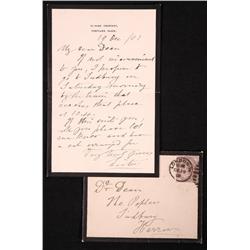 12, PARK CRESCENT,
PORTLAND PLACE.
19 Dec /03
My dear Dean
If not inconvenient
to you, I propose to
go to Sudbury on
Saturday morning
by the train that
reaches that place
at
If this suits you,
will you please let
me know and have
a cot arranged for
Very truly yours
Lister
Dr Dean
The Poplars
Sudbury
Harrow